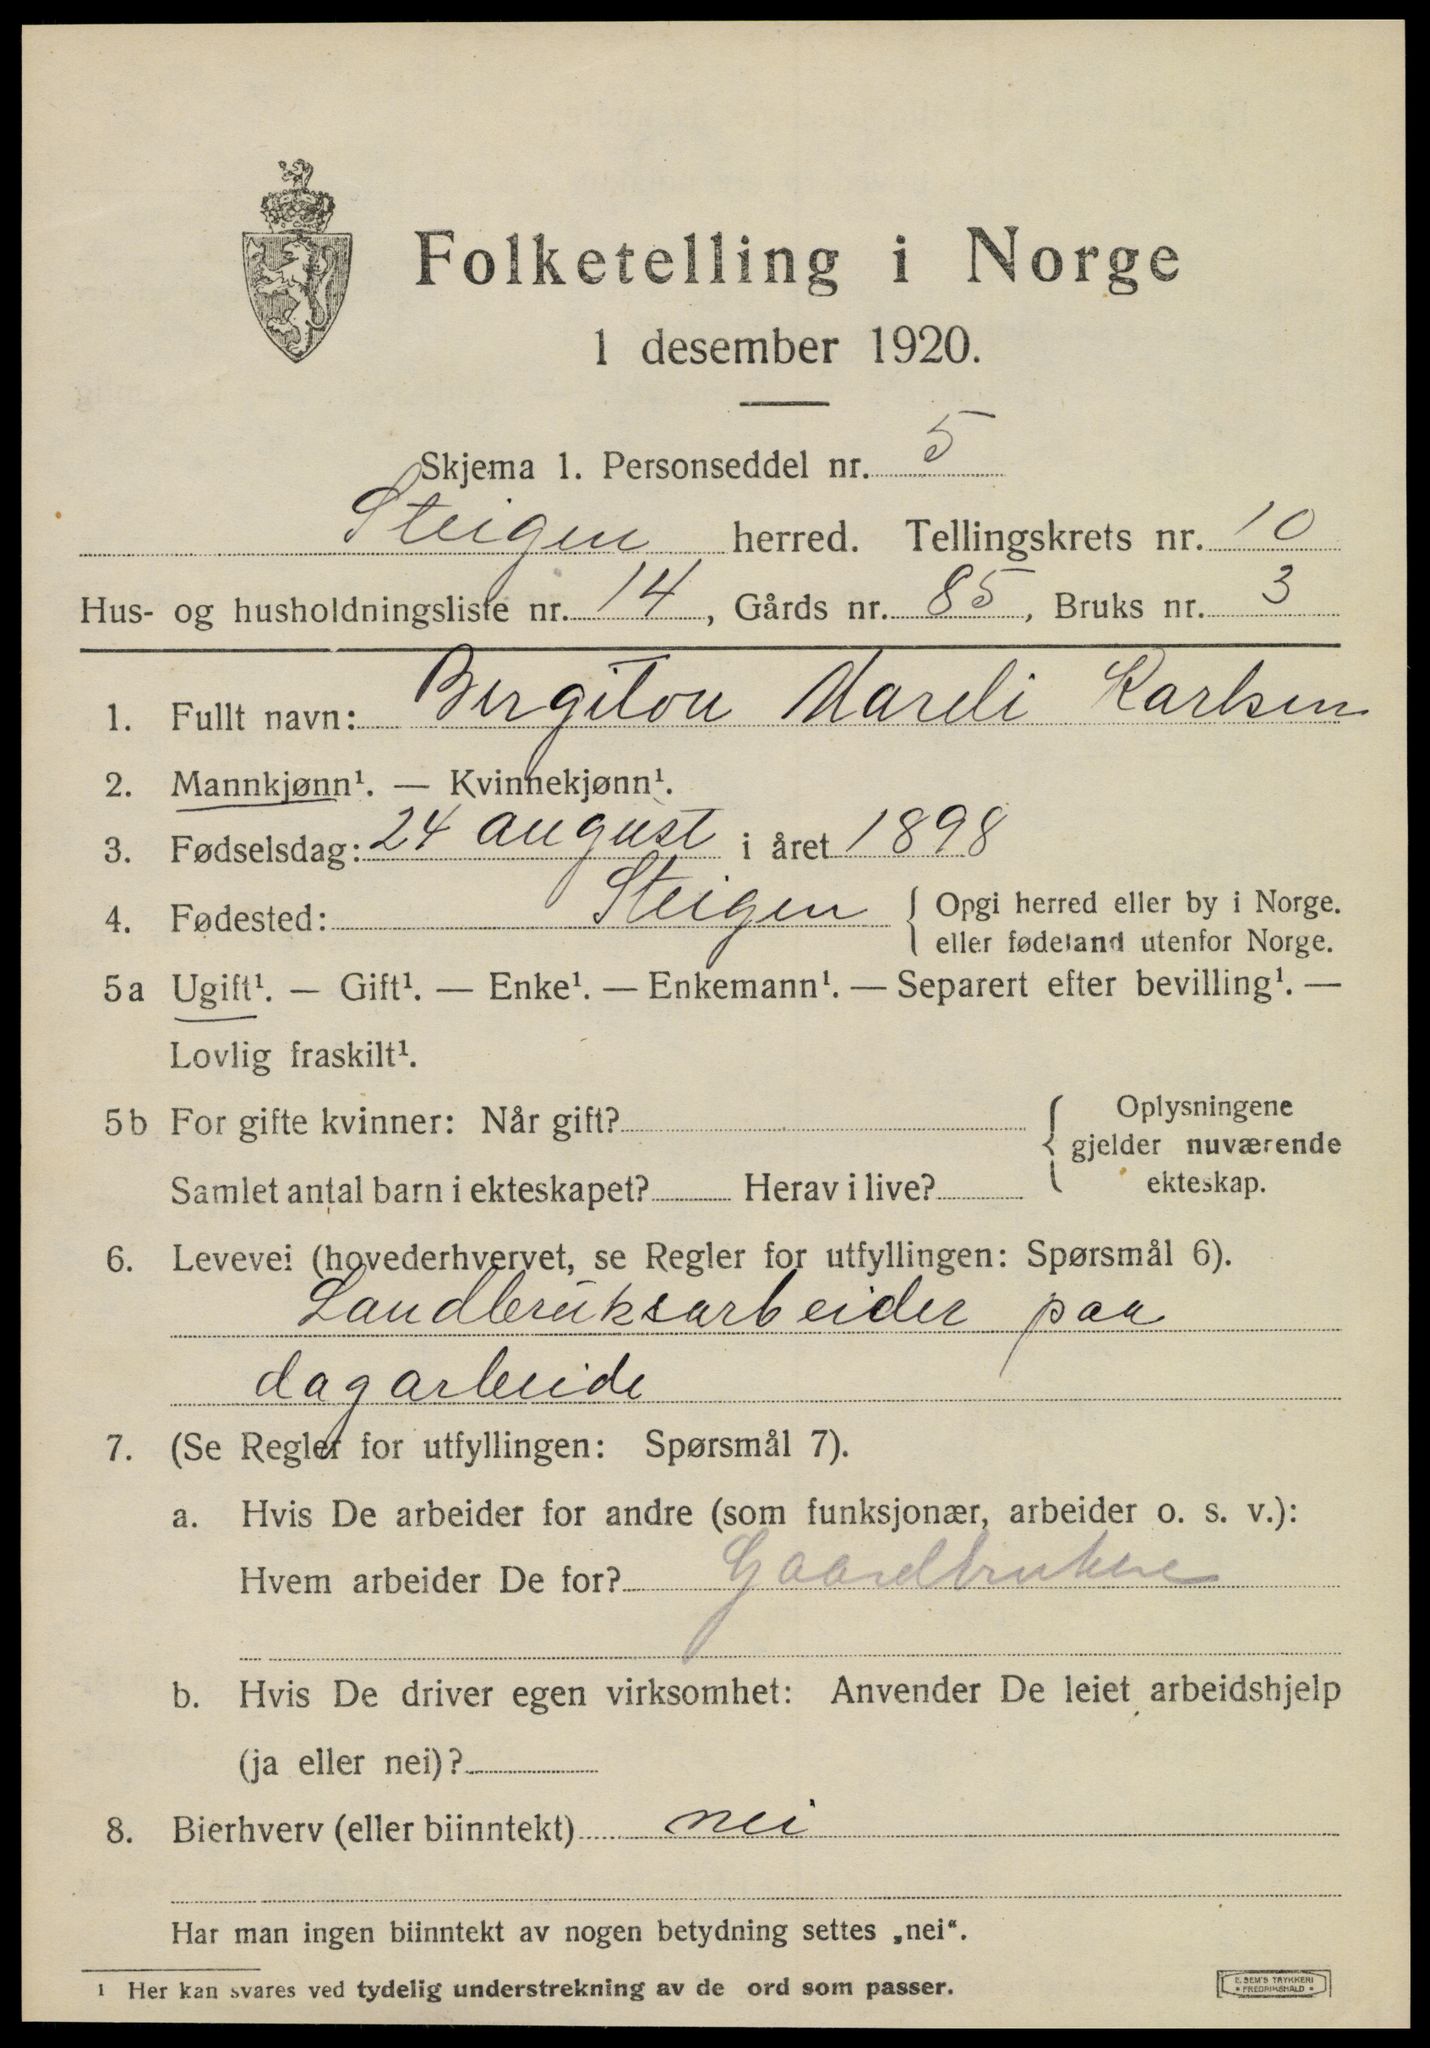 Folketelling i Norge
1 desember 1920.
Skjema 1. Personseddel nr. 5
Steigen herred. Tellingskrets nr. 10
Hus- og husholdningsliste nr. 14, Gårds nr. 85, Bruks nr. 3
1. Fullt navn: Bergiton Mareli Karlsen
2. Mannkjønn¹. — Kvinnekjønn¹.
3. Fødselsdag: 24 august i året 1898
4. Fødested: Steigen { Opgi herred eller by i Norge.
eller fødeland utenfor Norge.
5a Ugift¹. — Gift¹. — Enke¹. — Enkemann¹. — Separert efter bevilling¹. —
Lovlig fraskilt¹.
5b For gifte kvinner: Når gift? { Oplysningene
gjelder nuværende
ekteskap.
Samlet antal barn i ekteskapet? Herav i live?
6. Levevei (hovederhvervet, se Regler for utfyllingen: Spørsmål 6).
Landbruksarbeider paa
dagarbeide
7. (Se Regler for utfyllingen: Spørsmål 7).
a. Hvis De arbeider for andre (som funksjonær, arbeider o. s. v.):
Hvem arbeider De for? Gaardbrukere
b. Hvis De driver egen virksomhet: Anvender De leiet arbeidshjelp
(ja eller nei)?
8. Bierhverv (eller biinntekt) nei
Har man ingen biinntekt av nogen betydning settes „nei“.
1 Her kan svares ved tydelig understrekning av de ord som passer.
E. SEM'S TRYKKERI
• FREDRIKSHALD •